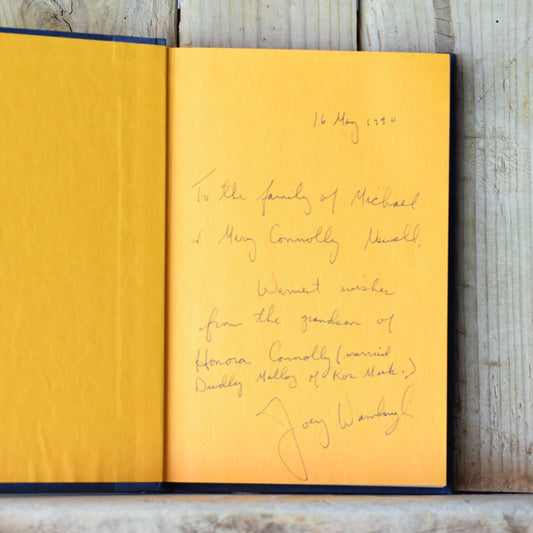 16 May 1990
To the family of Michael
& Mary Connolly Newell,
Warmest wishes
from the grandson of
Honora Connolly (married
Duddy Malloy of Ros Muck.)
Joey Wambaugh